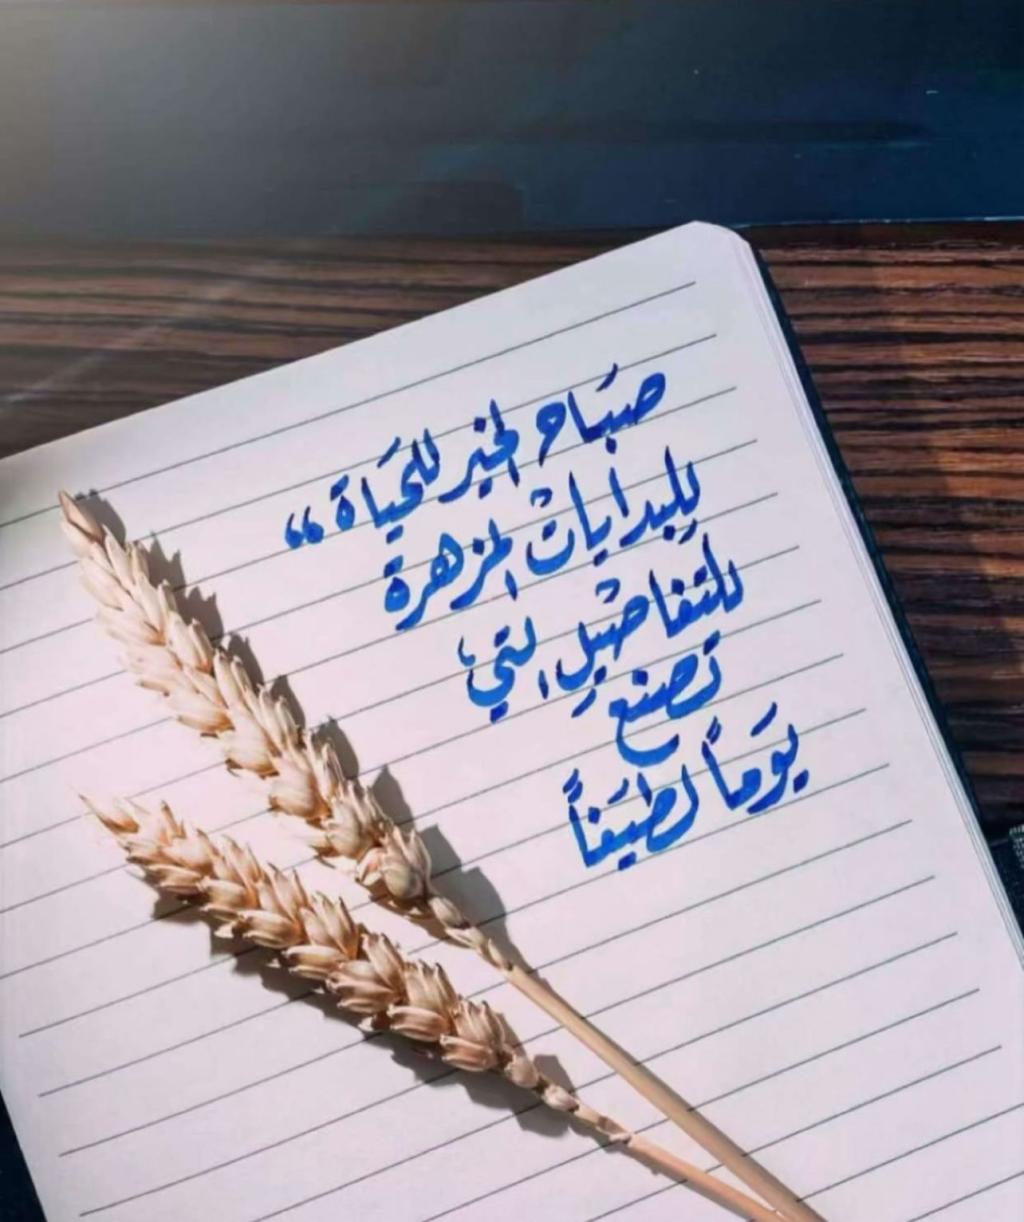 صَبَاح الخير للحَياة “
لِلبدايات المزهرة
للتفاصيلِ التي ،
تصنع
يَوماً لطيَفاً